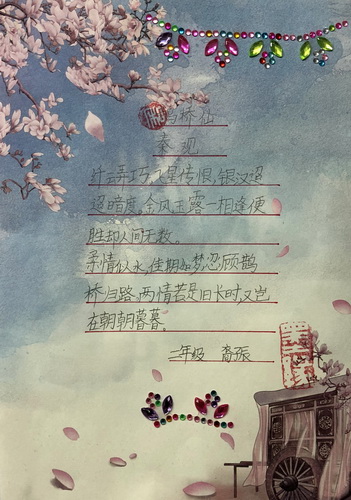 鹊桥仙
秦观
纤云弄巧,飞星传恨,银汉迢
迢暗度。金风玉露一相逢便
胜却人间无数。
柔情似水,佳期如梦,忍顾鹊
桥归路.两情若是旧长时,又岂
在朝朝暮暮。
二年级 裔振